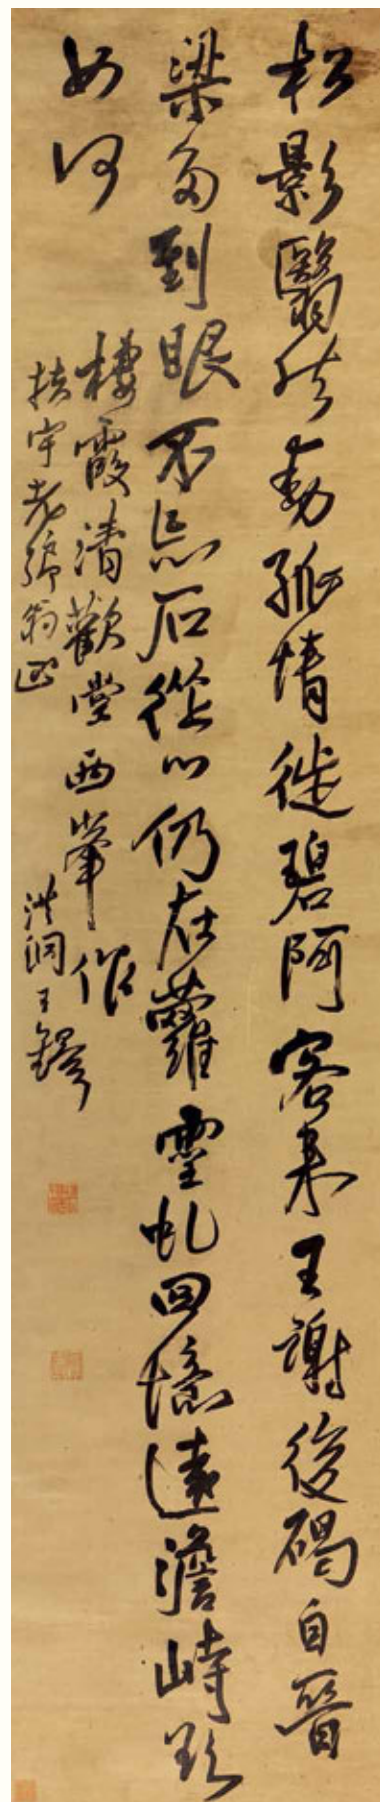 松影翳然動孤情徙碧阿客来王謝後碣自晉
梁多到眼不忘石從心仍在蘿靈虬回憶遠澹峙欲
如何
棲霞清歡堂西峯作
扶宇老鄉翁正
洪洞王鐸